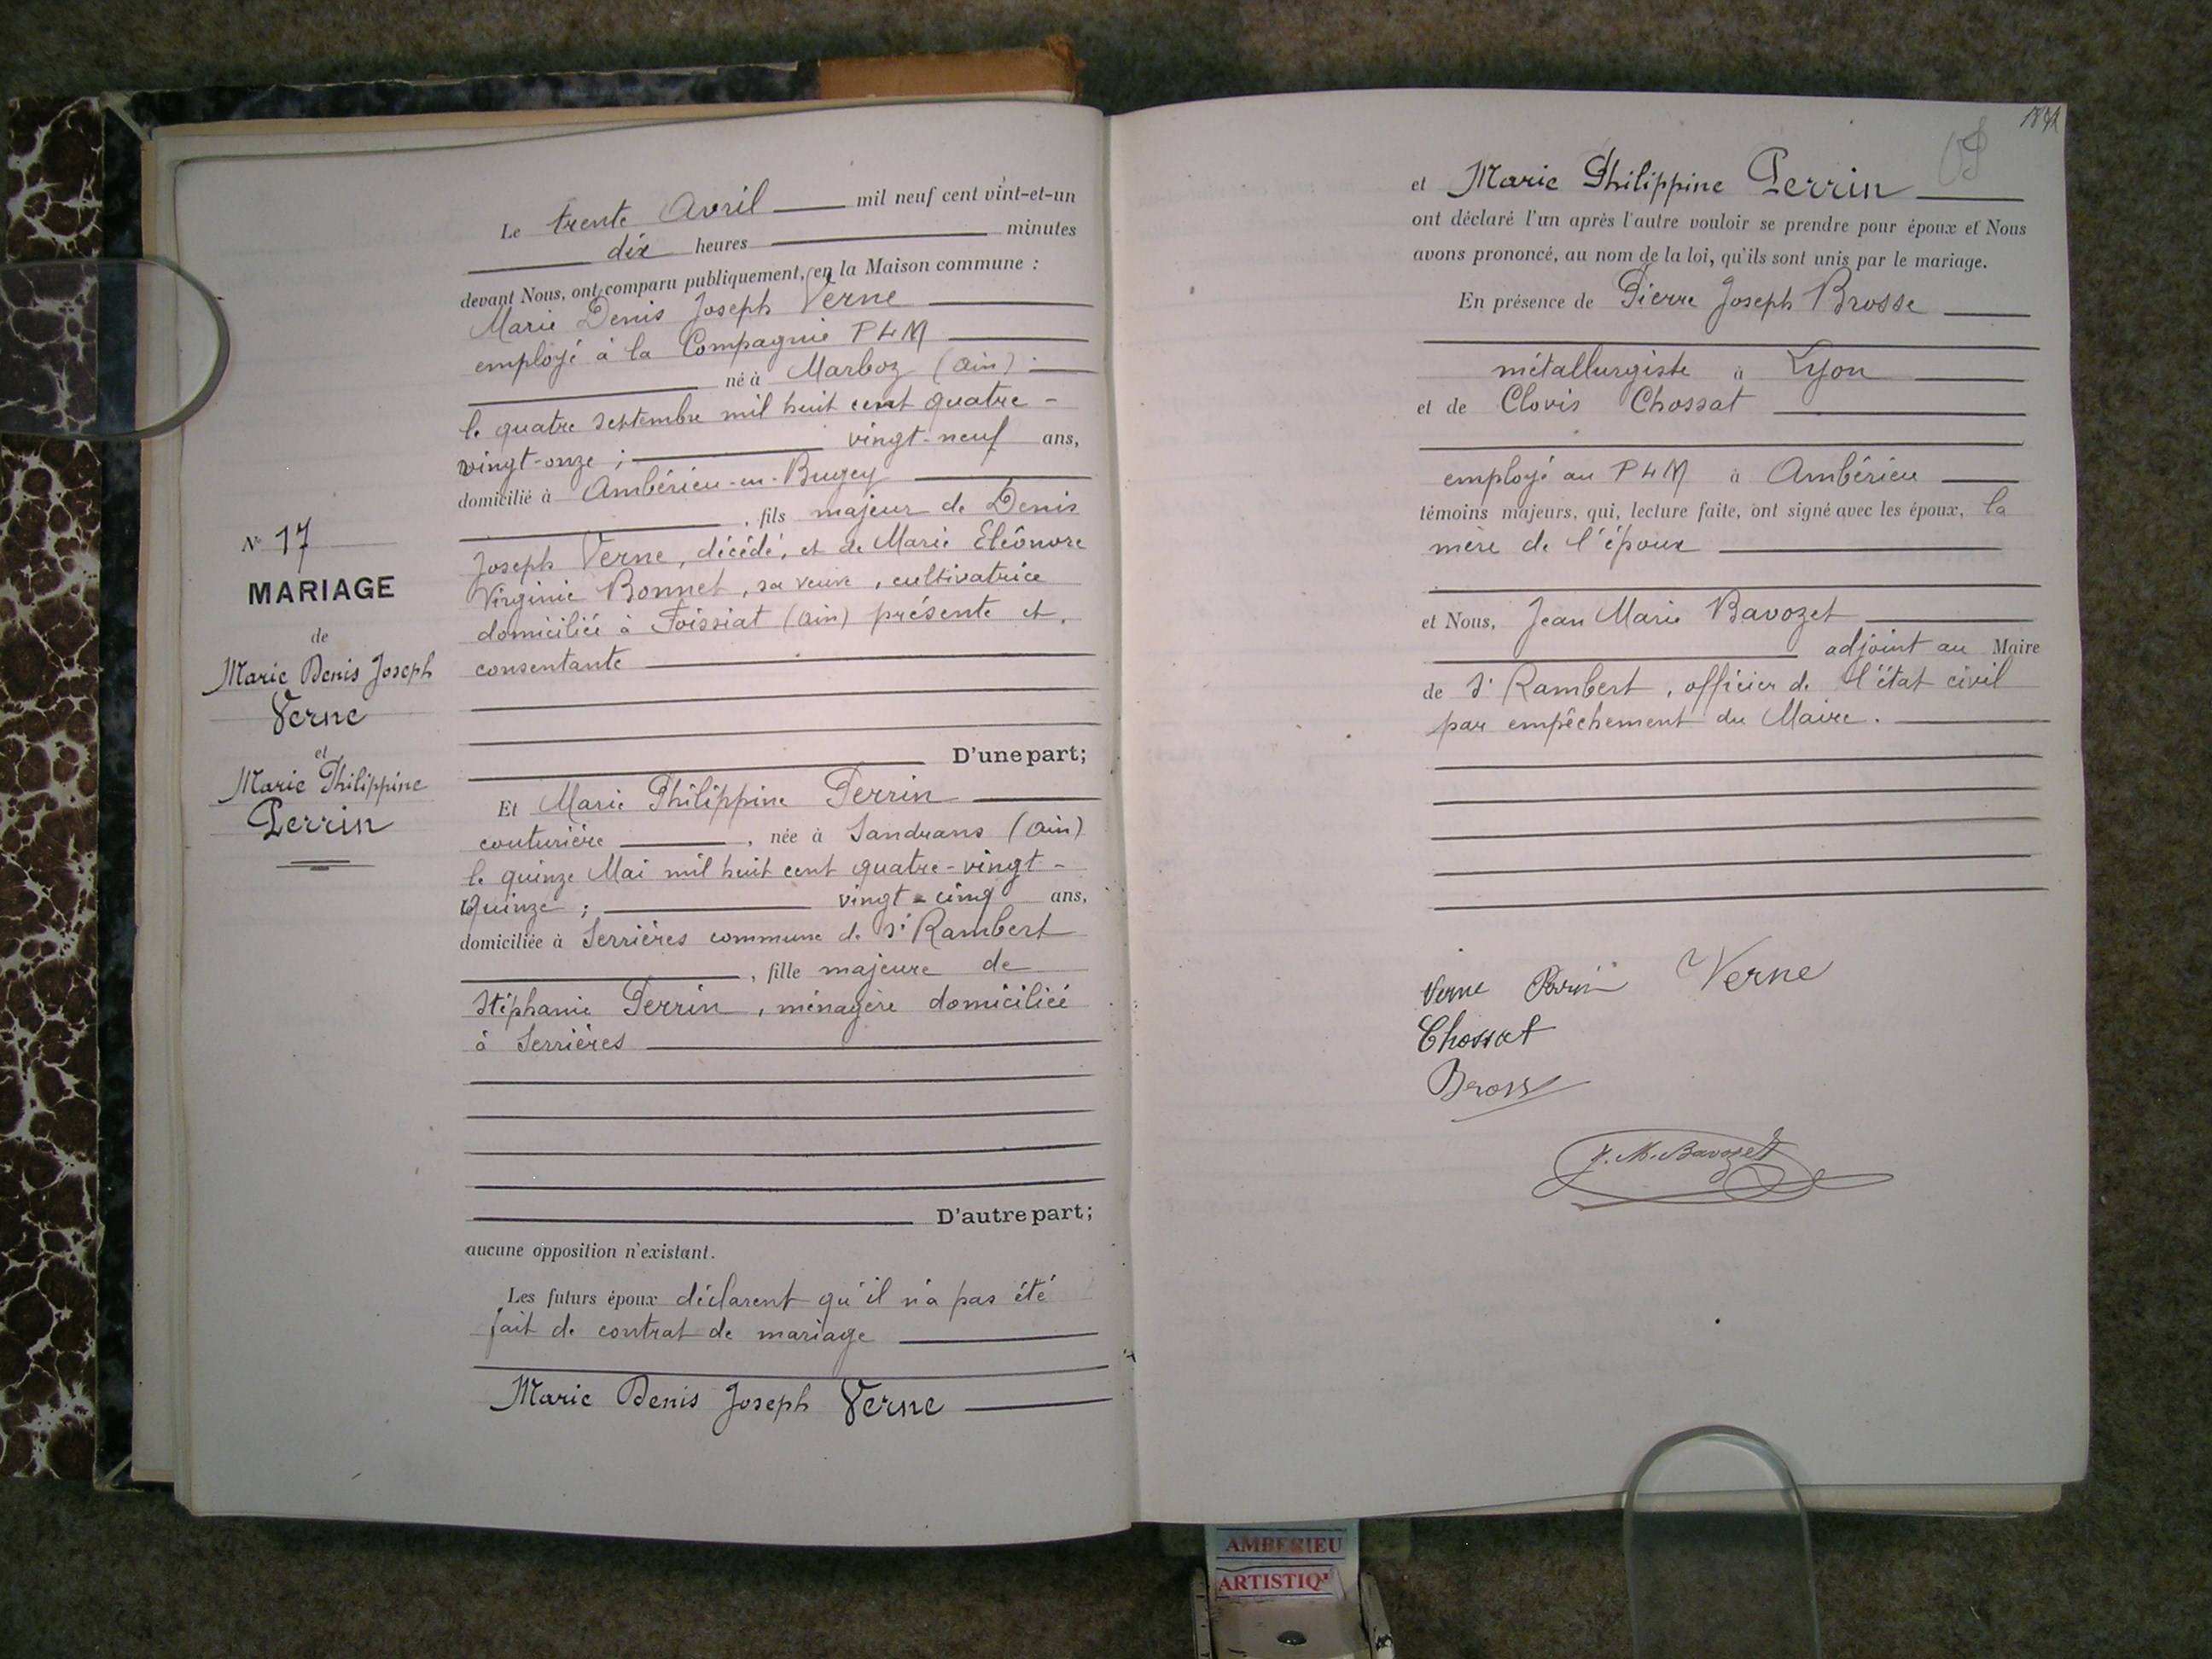 Le trente Avril mil neuf cent vint-et-un
dix heures minutes
devant Nous, ont comparu publiquement, en la Maison commune :
Marie Denis Joseph Verne
employé à la Compagnie PLM
né à Marboz (Ain) :
le quatre septembre mil huit cent quatre-
vingt-onze ; vingt-neuf ans,
domicilié à Ambérieu-en-Bugey
, fils majeur de Denis
Joseph Verne, décédé, et de Marie Eléonore
Virginie Bonnet, sa veuve, cultivatrice
domiciliée à Foissiat (Ain) présente et
consentante
D'une part;
N° 17
MARIAGE
de
Marie Denis Joseph
Verne
et
Marie Philippine
Perrin
Et Marie Philippine Perrin
couturière , née à Sandrans (Ain)
le quinze Mai mil huit cent quatre-vingt-
quinze ; vingt-cinq ans,
domiciliée à Serrières commune de St Rambert
, fille majeure de
Stéphanie Perrin, ménagère domiciliée
à Serrières
D'autre part;
aucune opposition n'existant.
Les futurs époux déclarent qu'il n'a pas été
fait de contrat de mariage
Marie Denis Joseph Verne
et Marie Philippine Perrin
ont déclaré l'un après l'autre vouloir se prendre pour époux et Nous
avons prononcé, au nom de la loi, qu'ils sont unis par le mariage.
En présence de Pierre Joseph Brosse
métallurgiste à Lyon
et de Clovis Chossat
employé au PLM à Ambérieu
témoins majeurs, qui, lecture faite, ont signé avec les époux, la
mère de l'époux
et Nous, Jean Marie Bavozet
adjoint au Maire
de St Rambert, officier de l'état civil
par empêchement du Maire.
Verne Perrin Verne
Chossat
Brosse
J. M. Bavozet
AMBERIEU
ARTISTIQ